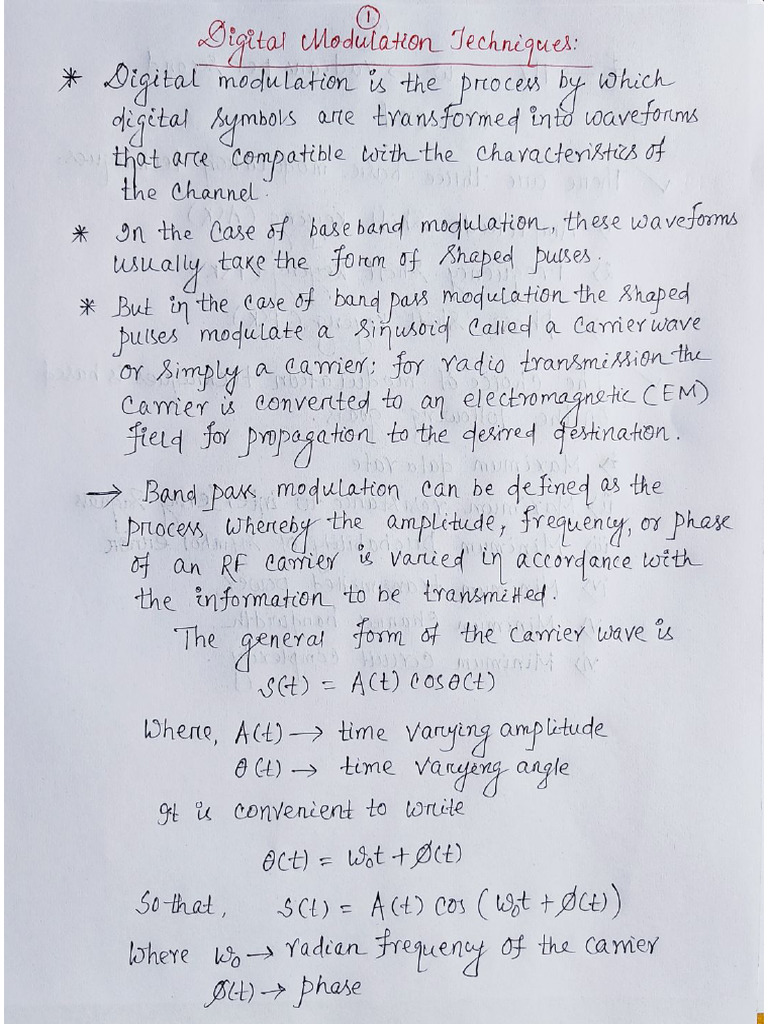 ①
Digital Modulation Techniques:
* Digital modulation is the process by which
digital symbols are transformed into waveforms
that are compatible with the characteristics of
the channel.
* In the case of baseband modulation, these waveforms
usually take the form of shaped pulses.
* But in the case of band pass modulation the shaped
pulses modulate a sinusoid called a carrier wave
or simply a carrier; for radio transmission the
carrier is converted to an electromagnetic (EM)
field for propagation to the desired destination.
→ Band pass modulation can be defined as the
process whereby the amplitude, frequency, or phase
of an RF carrier is varied in accordance with
the information to be transmitted.
The general form of the carrier wave is
s(t) = A(t) cosθ(t)
Where, A(t) → time varying amplitude
θ(t) → time varying angle
It is convenient to write
θ(t) = ω₀t + Ø(t)
So that, s(t) = A(t) cos (ω₀t + Ø(t))
Where ω₀ → radian frequency of the carrier
Ø(t) → phase